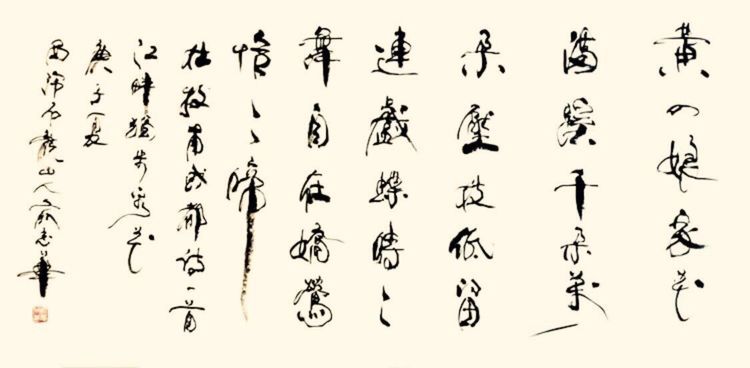 黄四娘家花
滿蹊千朵萬
朵壓枝低留
連戲蝶時々
舞自在嬌鶯
恰々啼
杜甫成都詩一首
江畔獨步尋花
庚子夏
石龍山人志華